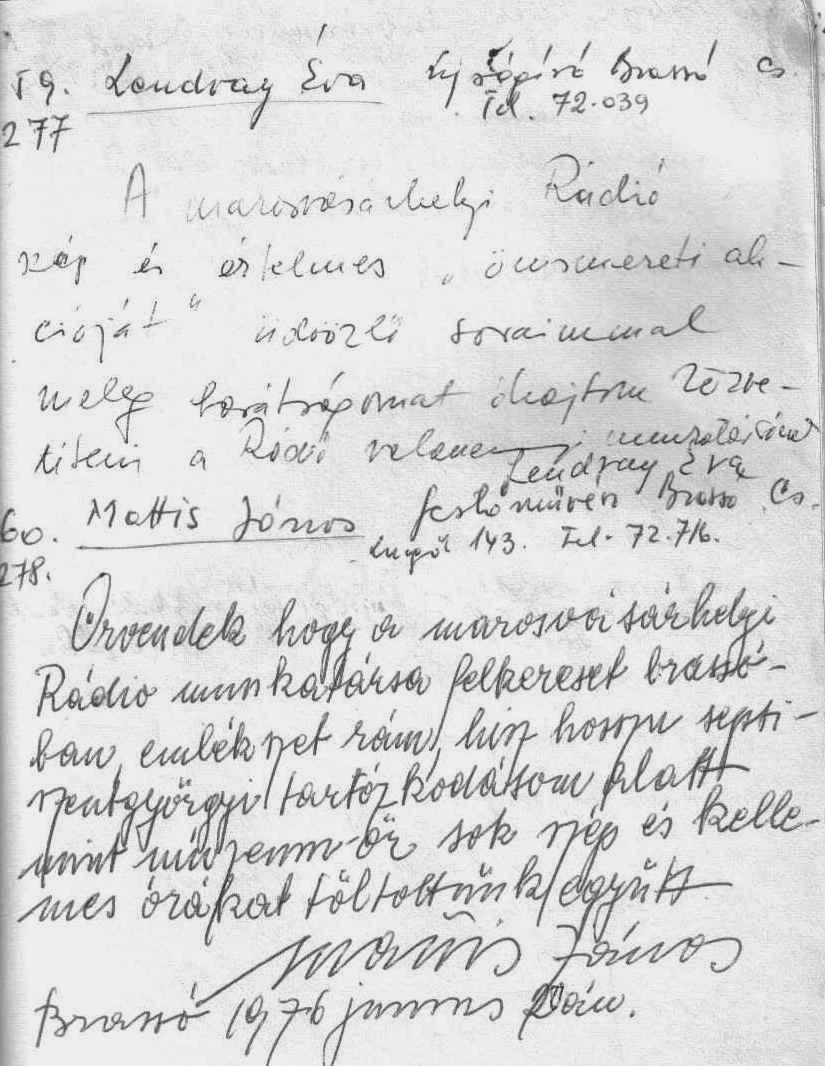 59. Lendvay Éva Ujságíró Brassó Cs.
Tel. 72.039
277
A marosvásárhelyi Rádió
szép és értelmes „önismereti ak-
cióját" üdvözlő soraimmal
meleg barátságomat óhajtom közve-
títeni a Rádió valamennyi munkatársának
Lendvay Éva
60. Mattis János festőművész Brassó Cs.
143. Tel. 72.716.
278.
Örvendek hogy a marosvásárhelyi
Rádio munkatársa felkereset brassó-
ban, emlékszet rám, hisz hosszu sepsi-
szentgyörgyi tartózkodásom alatt
mint múzeum-őr sok szép és kelle-
mes órákat töltöttünk együtt
Mattis János
Brassó 1976 junius án.